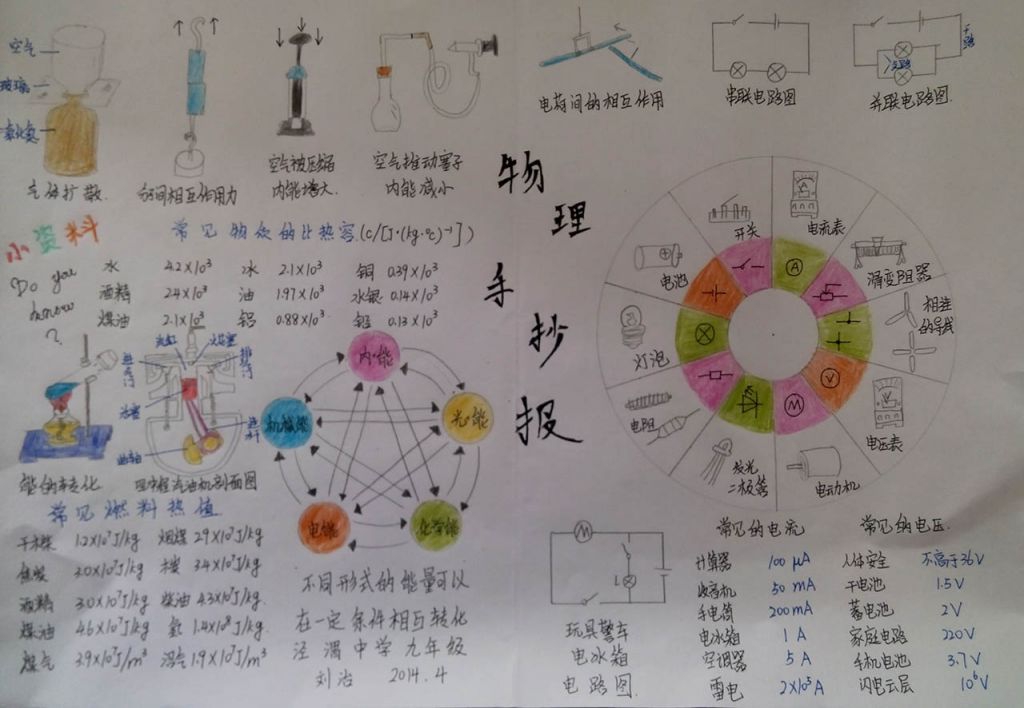 空气
玻璃
气体扩散
分子间相互作用力
空气被压缩
内能增大
空气推动塞子
内能减小
电荷间的相互作用
串联电路图
并联电路图
干路
支路
物理手抄报
小资料
Do you
know
?
常见物质的比热容(c/[J·(kg·℃)⁻¹])
水 4.2×10³ 冰 2.1×10³ 铜 0.39×10³
酒精 2.4×10³ 油 1.97×10³ 水银 0.14×10³
煤油 2.1×10³ 铝 0.88×10³ 铅 0.13×10³
火花塞
活塞
连杆
曲轴
能的转化
四冲程汽油机剖面图
内能
机械能
光能
电能
化学能
不同形式的能量可以
在一定条件相互转化
泾渭中学九年级
刘治 2014.4
常见燃料热值
干木柴 1.2×10⁷J/kg 烟煤 2.9×10⁷J/kg
焦炭 3.0×10⁷J/kg 木炭 3.4×10⁷J/kg
酒精 3.0×10⁷J/kg 柴油 4.3×10⁷J/kg
煤油 4.6×10⁷J/kg 氢 1.4×10⁸J/kg
煤气 3.9×10⁷J/m³ 沼气 1.9×10⁷J/m³
开关
电流表
滑变阻器
相连
的导线
电压表
电动机
发光
二极管
电阻
灯泡
电池
A
V
M
M
L
玩具警车
电冰箱
电路图
常见的电流
计算器 100 μA
收音机 50 mA
手电筒 200 mA
电冰箱 1 A
空调器 5 A
雷电 2×10⁵ A
常见的电压
人体安全 不高于36V
干电池 1.5V
蓄电池 2V
家庭电路 220V
手机电池 3.7V
闪电云层 10⁶V